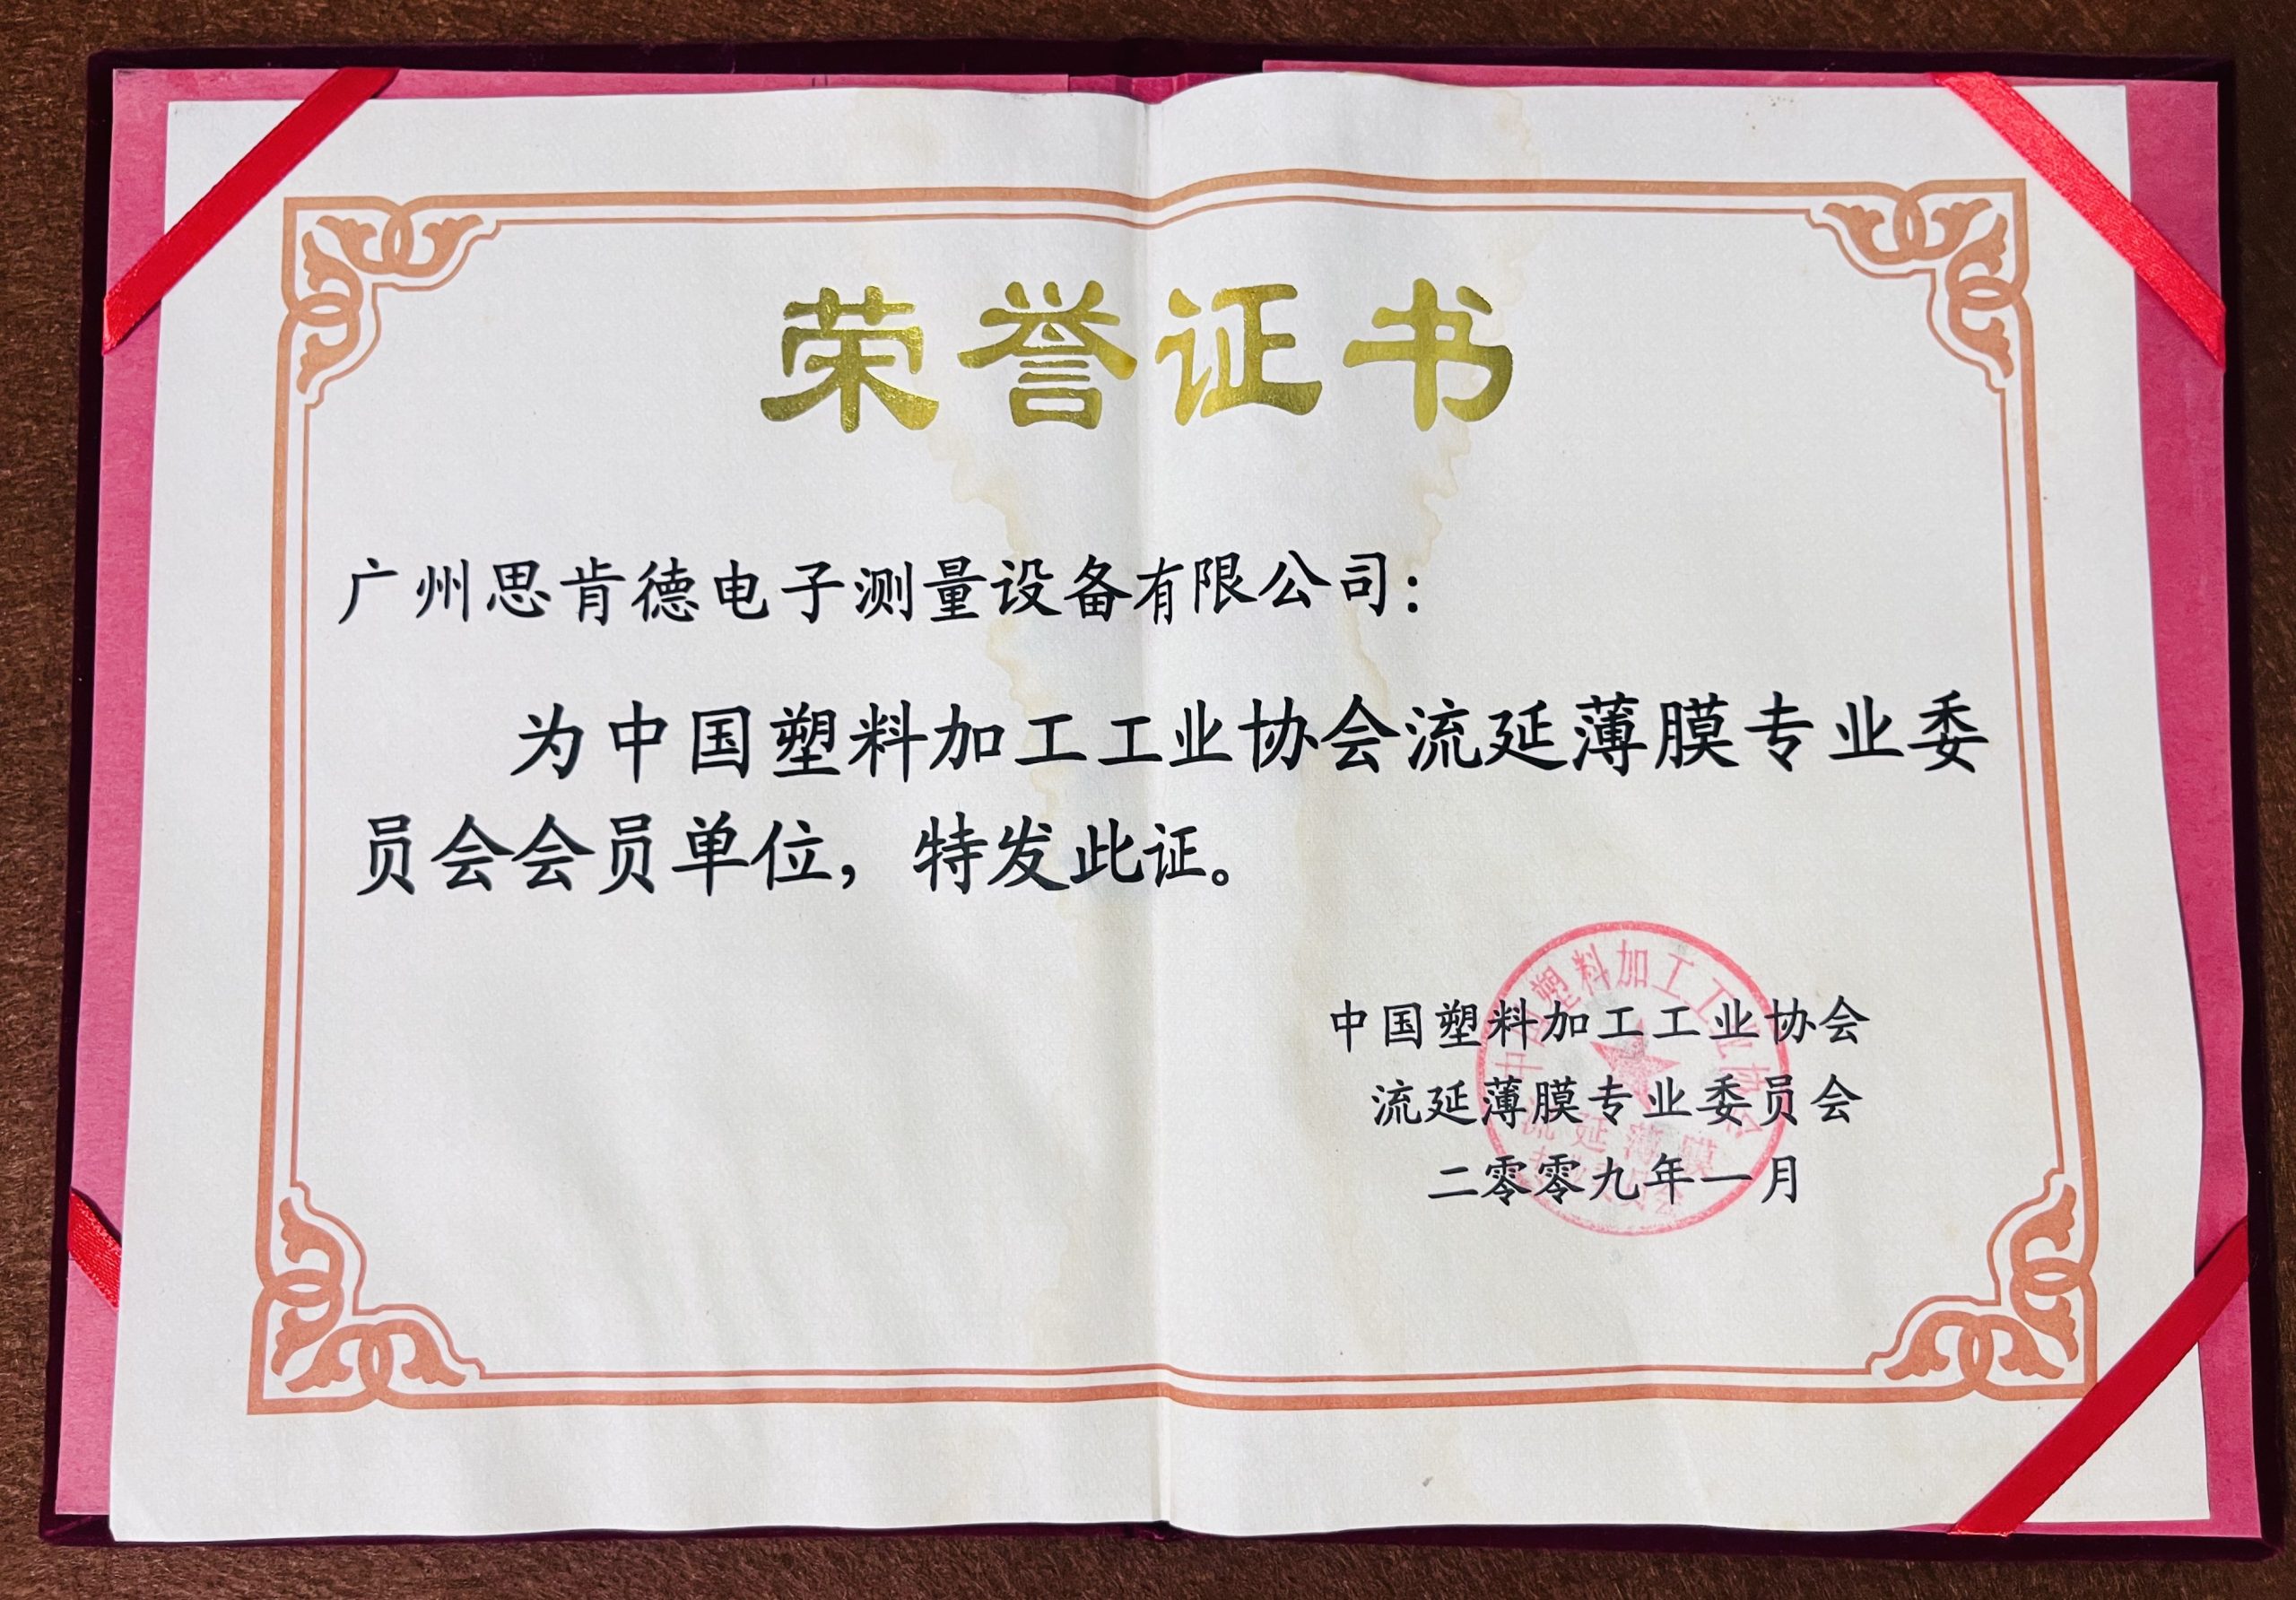 荣誉证书
广州思肯德电子测量设备有限公司：
为中国塑料加工工业协会流延薄膜专业委
员会会员单位，特发此证。
中国塑料加工工业协会
流延薄膜专业委员会
二零零九年一月
中国塑料加工工业协会
流延薄膜
专业委员会